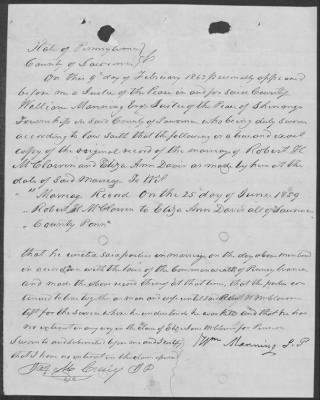 State of Pennsylvania
County of Lawrence
On this 9th day of February 1863 personally appeared
before me a Justice of the Peace in and for said County
William Manning Esqr Justice of the Peace of Shenango
Township in said County of Lawrence who being duly sworn
according to law saith that the following is a true and exact
copy of the original record of the marriage of Robert W.
McClaren and Eliza Ann Davis as made by him at the
date of said Marriage To Wit
"Marriage Record On the 25th day of June 1859
" Robert W McClaren to Eliza Ann Davis all of Lawrence
" County Penn"
that he united said parties in marriage on the day above mentioned
in accordance with the laws of the Commonwealth of Pennsylvania
and made the above record thereof at that time, that the parties
continued to live together as man and wife until said Robert W McClaren
left for the service where he understands he was killed and that he has
no interest in any way in the Claim of Eliza Ann McClaren for Pension
Sworn to and subscribed before me and I certify
that I have no interest in the claim
Wm Manning J.P
McCraig JP